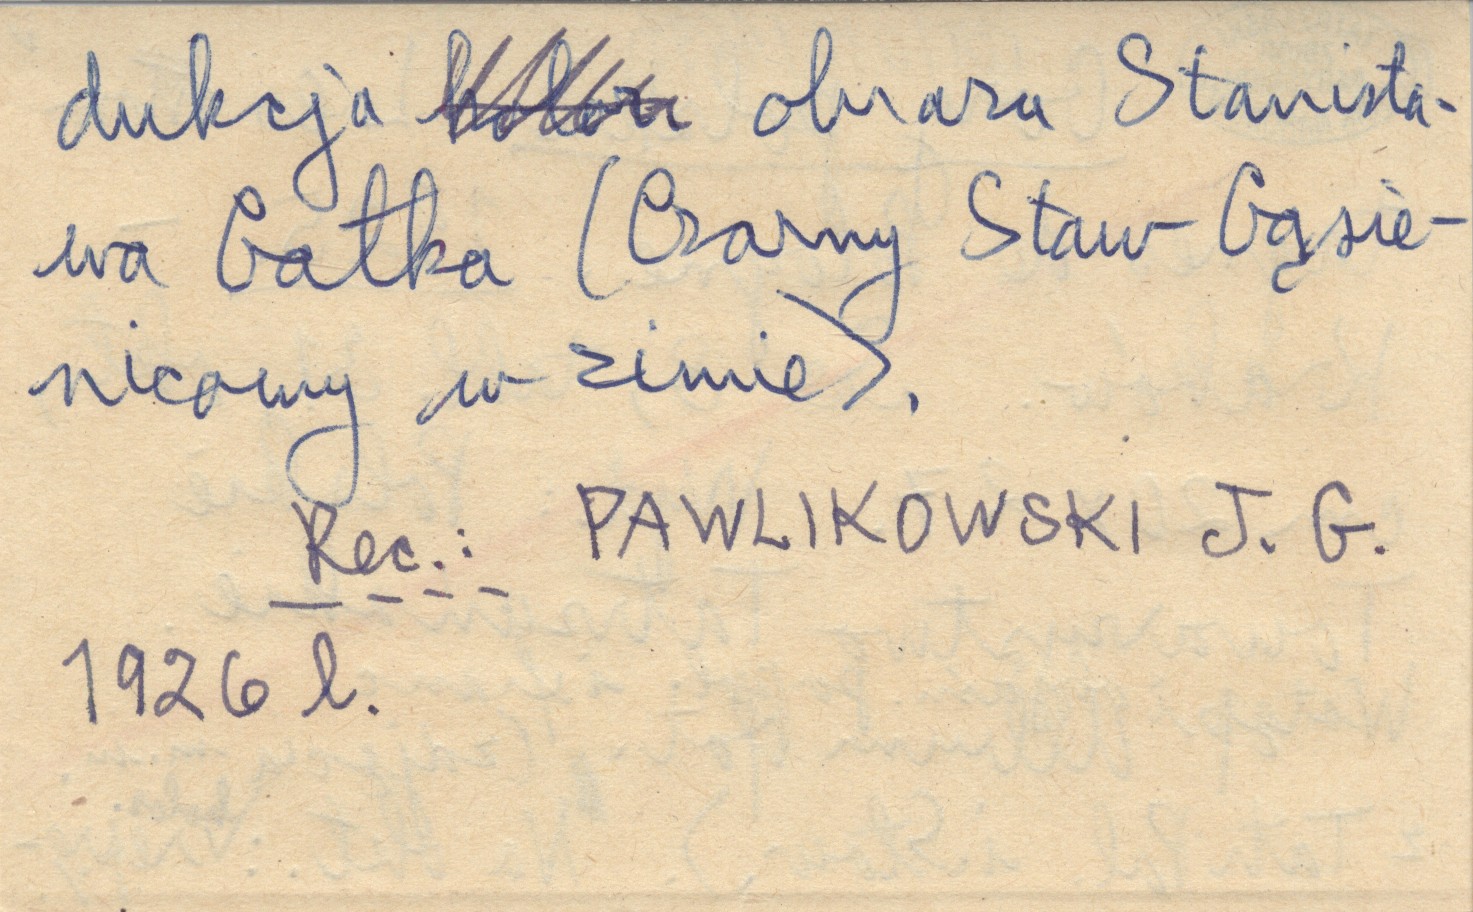 dukcja obrazu Stanisła-
wa Gałka (Czarny Staw Gąsie-
nicowy w zimie).
Rec.: PAWLIKOWSKI J. G.
1926 l.